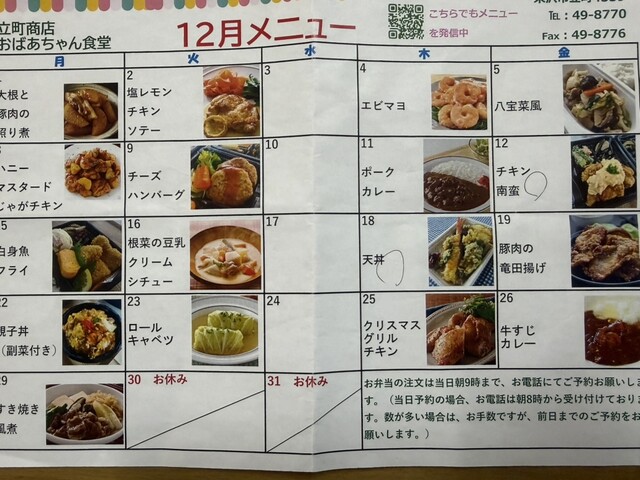 立町商店
おばあちゃん食堂
12月メニュー
こちらでもメニュー
を発信中
TEL：49-8770
Fax：49-8776
月 火 水 木 金
大根と
豚肉の
照り煮
2
塩レモン
チキン
ソテー
3
4
エビマヨ
5
八宝菜風
ハニー
マスタード
じゃがチキン
9
チーズ
ハンバーグ
10
11
ポーク
カレー
12
チキン
南蛮
白身魚
フライ
16
根菜の豆乳
クリーム
シチュー
17
18
天丼
19
豚肉の
竜田揚げ
22
親子丼
（副菜付き）
23
ロール
キャベツ
24
25
クリスマス
グリル
チキン
26
牛すじ
カレー
29
すき焼き
風煮
30 お休み
31 お休み
お弁当の注文は当日朝9時まで、お電話にてご予約お願いしま
す。（当日予約の場合、お電話は朝8時から受け付けておりま
す。数が多い場合は、お手数ですが、前日までのご予約をお
願いします。）